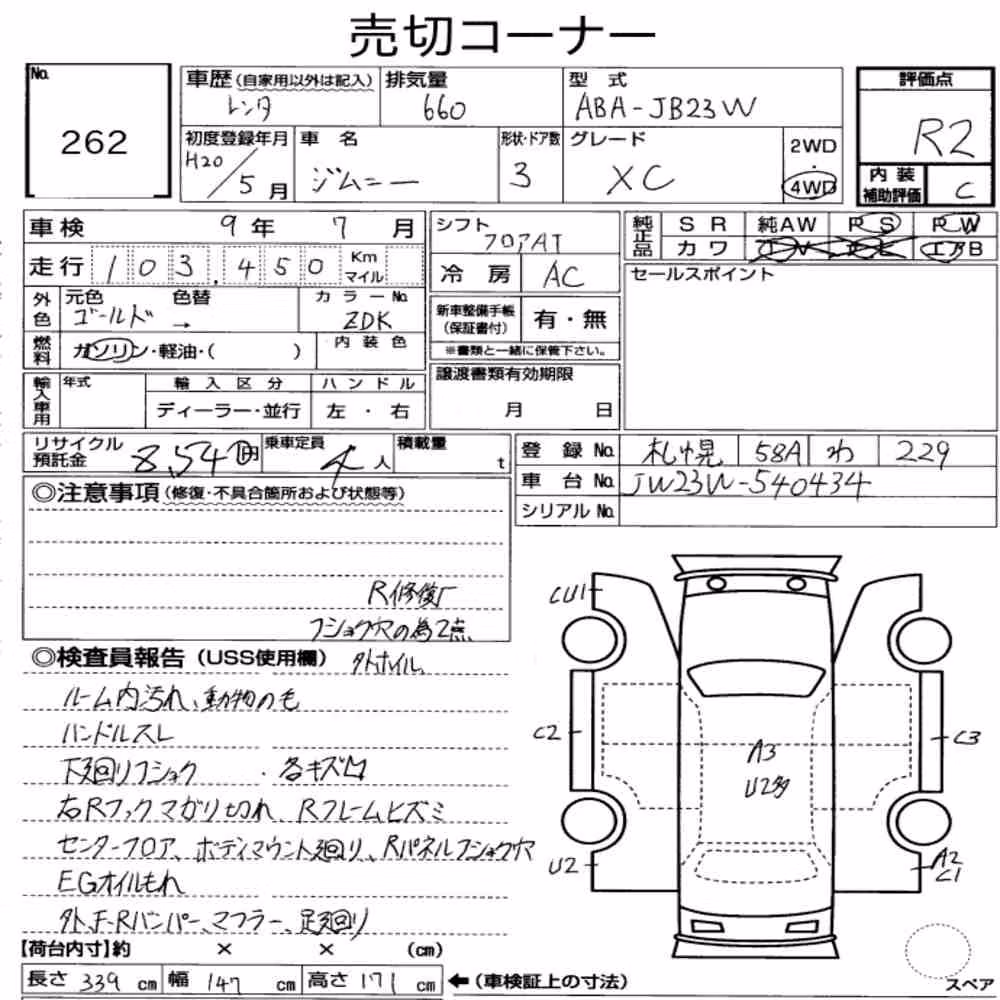 売切コーナー
No.
262
車歴(自家用以外は記入) 排気量 型式 評価点
レンタ 660 ABA-JB23W R2
初度登録年月 車名 形状・ドア数 グレード 2WD ・ 4WD
H20/5月 ジムニー 3 XC
内装補助評価 C
車検 9年 7月
シフト フロアAT
純正品 SR 純AW PS PW
カワ TV ナビ エアB
走行 103,450 Km マイル
冷房 AC
セールスポイント
外色 元色 色替 カラーNo.
ゴールド → ZDK
新車整備手帳(保証書付) 有・無
※書類と一緒に保管下さい。
燃料 ガソリン・軽油・( ) 内装色
輸入車用 年式 輸入区分 ハンドル
ディーラー・並行 左・右
譲渡書類有効期限
月 日
リサイクル預託金 8,540 円 乗車定員 4人 積載量 t
登録No. 札幌 58A わ 229
車台No. JW23W-540434
シリアルNo.
◎注意事項(修復・不具合箇所および状態等)
R修復
フショク穴の為2点
◎検査員報告(USS使用欄) 外ホイル
ルーム内汚れ、動物のも
ハンドルスレ
下廻りフショク ・各キズ凹
右Rフック マガリ切れ、Rフレームヒズミ
センターフロア、ボディマウント廻り、Rパネルフショク穴
EGオイルもれ
外、F-Rバンパー、マフラー、足廻り
CU1
C2
A3
U2多
C3
U2
A2
C1
【荷台内寸】約 × × (cm)
長さ 339 cm 幅 147 cm 高さ 171 cm ←(車検証上の寸法)
スペア